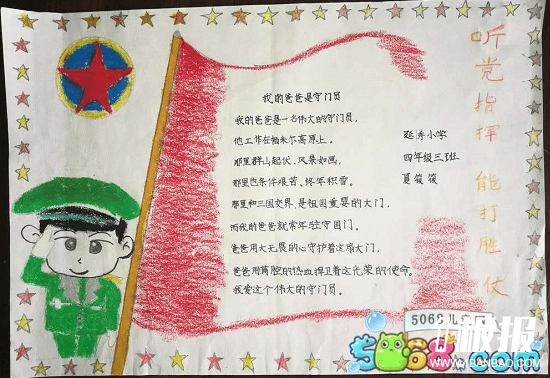 我的爸爸是守门员
我的爸爸是一名伟大的守门员,
他工作在帕米尔高原上。
那里群山起伏、风景如画,
那里也条件艰苦、终年积雪。
那里和三国交界,是祖国重要的大门,
而我的爸爸就常年驻守国门。
爸爸用大无畏的心守护着这扇大门,
爸爸用满腔的热血捍卫着这光荣的使命。
我爱这个伟大的守门员。
小学
四年级三班
夏筱筱
听党指挥 能打胜仗
5068儿
板报
5068.com
WWW.BANBAO.COM